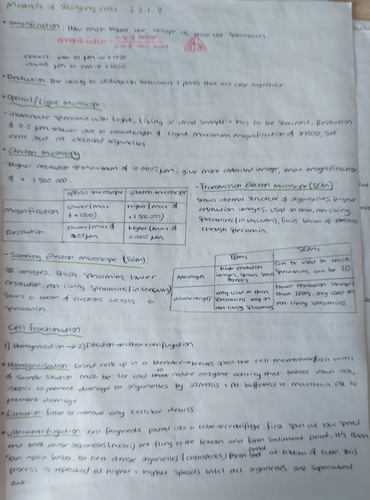 Methods of studying cells - 3.2.1.3
• Magnification: How much bigger the image is than the specimen.
magnification = size of image
size of real object
- convert mm to µm = x1000
- convert µm to nm = x1000
• Resolution: The ability to distinguish between 2 points that are close together
• Optical/Light Microscope:
- Illuminate specimen with light, living or dead sample - has to be stained, resolution
of 0.2 µm due to wavelength of light, maximum magnification of x1500, see
cells but not detailed organelles.
• Electron microscopy
- Higher resolution maximum of 0.0002µm, give more detailed image, max magnification
of x 1 500 000
optical microscope | electron microscope
Magnification | lower (max of x 1500) | higher (max of x 1 500 000)
Resolution | lower (max of µm) | higher (max of 0.0002 µm)
- Transmission Electron Microscope
shows internal structure of organelles, higher
resolution images, used on thin, non-living
specimens (in vacuum), fires beam of electrons
through specimen.
- Scanning Electron Microscope (SEM):
3D images, thick specimens, lower
resolution, non living specimens (in vacuum)
a beam of electrons across a
specimen.
TEMs | SEMs
Advantages | high resolution images, shows | Can be used on thick specimens, can be 3D
Disadvantages | only used on thin specimens only on non living specimens | lower resolution images than TEMs, only used on non living specimens
Cell Fractionation
1) Homogenisation → 2) Filtration → Ultracentrifugation
• Homogenisation: grind cells up in a blender → breaks open the cell membrane/cell wall
Sample solution must be ice cold reduce enzyme activity that breaks down cell,
isotonic to prevent damage to organelles by osmosis + pH buffered to maintain pH to
prevent damage
• Filtration: filter to remove any cellular debris
• Ultracentrifugation: cell fragments poured into a tube → centrifuge first spin at low speed
and most dense organelles (nuclei) are flung to the bottom and form sediment pellet. It's then
spun again faster, the next dense organelles form pellet at bottom of tube. This
process is repeated at higher + higher speeds until all organelles are separated
out.